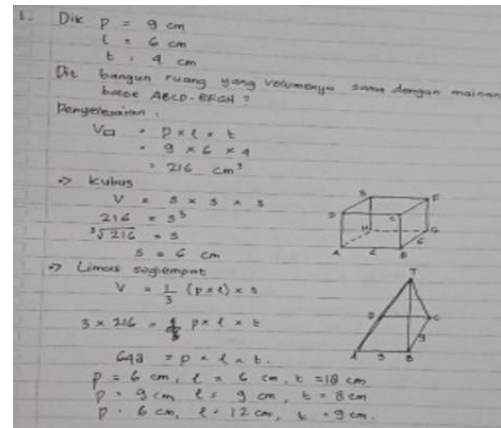 1. Dik p = 9 cm
l = 6 cm
t = 4 cm
Dit bangun ruang yang volumenya sama dengan mainan
balok ABCD-EFGH ?
Penyelesaian :
V = p x l x t
= 9 x 6 x 4
= 216 cm³
=> Kubus
V = s x s x s
216 = s³
³√216 = s
s = 6 cm
=> Limas segiempat
V = 1/3 (p x l) x t
3 x 216 = p x l x t
648 = p x l x t.
p = 6 cm, l = 6 cm, t = 18 cm
p = 9 cm, l = 9 cm, t = 8 cm
p = 6 cm, l = 12 cm, t = 9 cm.
F
D
C
H
G
A
6
B
6
T
D
C
A
9
B
9